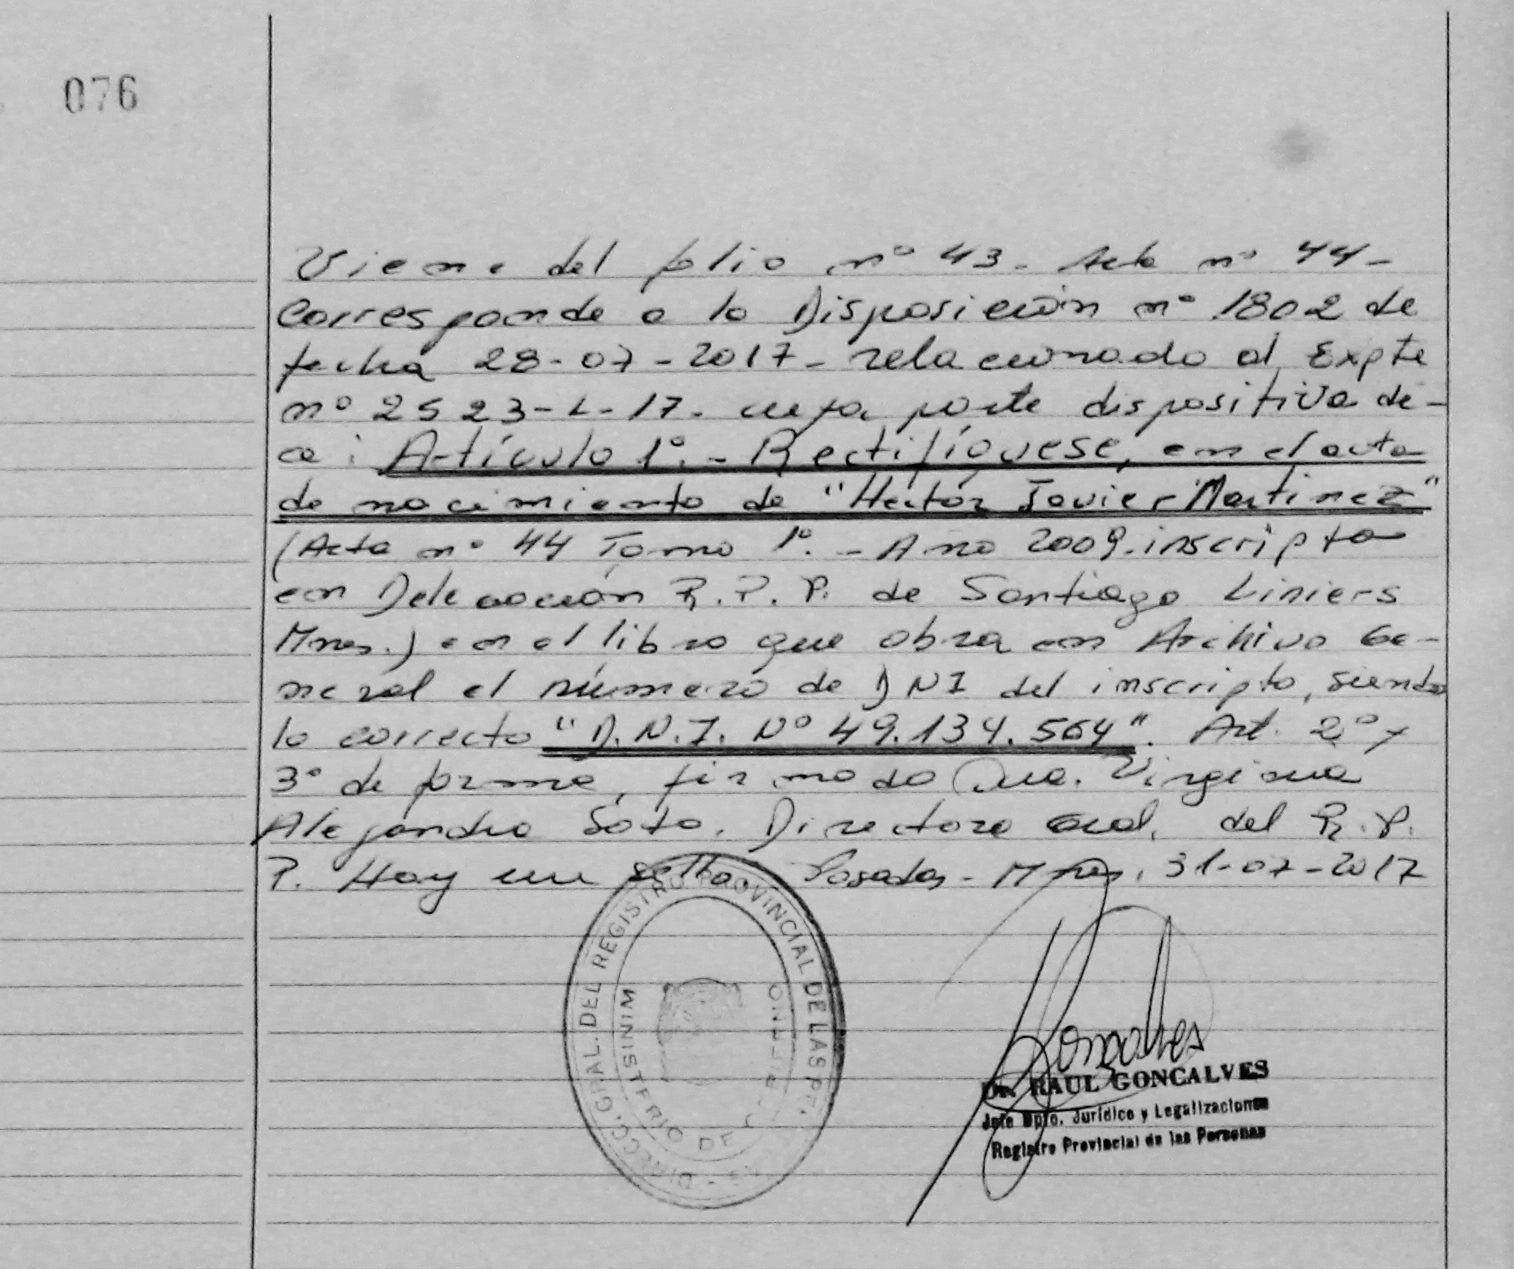 076
Viene del folio nº 43. Acta nº 44-
Corresponde a la Disposición nº 1802 de
fecha 28-07-2017- relacionado al Expte
nº 2523-L-17. cuya parte dispositiva di-
ce: Artículo 1º.- Rectifíquese, en el acta
de nacimiento de "Hector Javier Martinez"
(Acta nº 44 Tomo 1º.- Año 2009. inscripta
en Delegación R.P.P. de Santiago Liniers
Mnes.) en el libro que obra en Archivo Ge-
neral el número de DNI del inscripto, siendo
lo correcto "D.N.I. Nº 49.134.564". Art. 2º y
3º de forma, firmado Virginia
Alejandra Soto. Directora Gral. del R.P.
P. Hay un sello. Posadas - Mnes, 31-07-2017
DIRECC. GRAL. DEL REGISTRO PROVINCIAL DE LAS
MINISTERIO DE GOBIERNO
Goncalves
Dr. RAUL GONCALVES
Jefe Dpto. Jurídico y Legalizaciones
Registro Provincial de las Personas